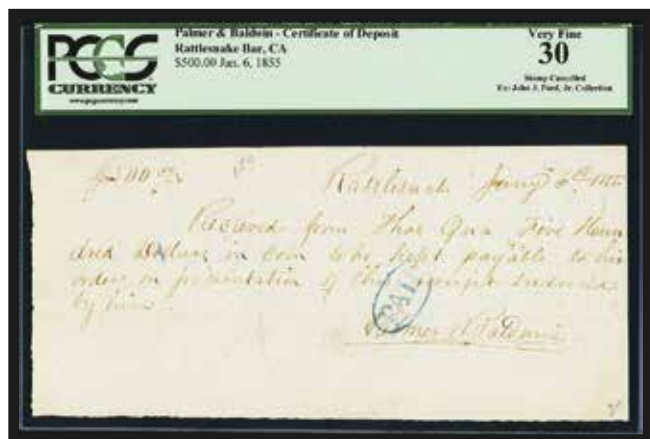 PCGS
CURRENCY
Palmer & Baldwin - Certificate of Deposit
Rattlesnake Bar, CA
$500.00 Jan. 6, 1855
Very Fine
30
Stamp Cancelled
Ex: John J. Ford, Jr. Collection
$500
Rattlesnake Jany 6th 1855
Received from Thos Five Hun
dred Dollars in Coin to be kept payable to his
order on presentation of this receipt endorsed
by him
PAID
Palmer & Baldwin